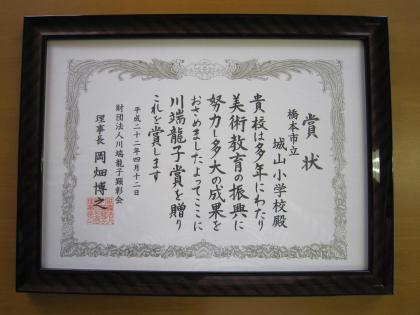 賞状
橋本市立
城山小学校殿
貴校は多年にわたり
美術教育の振興に
努力し多大の成果を
おさめましたよってここに
川端龍子賞を贈り
これを賞します
平成二十二年四月十二日
財団法人川端龍子顕彰会
理事長 岡畑博之